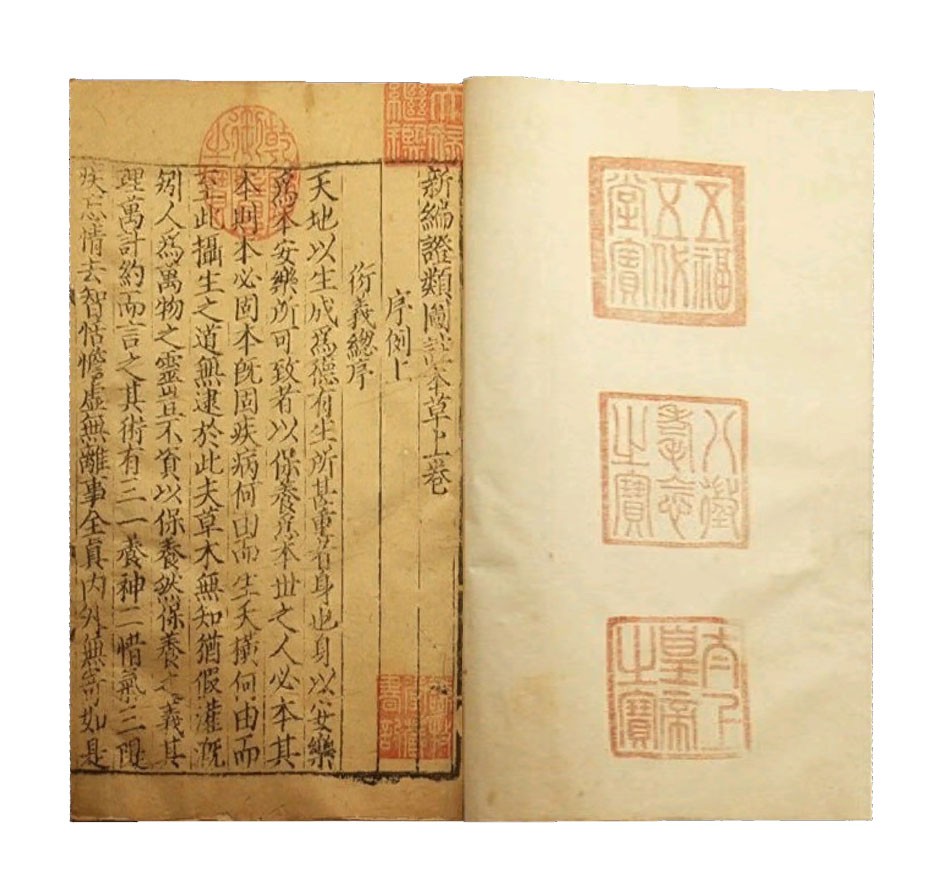 五福
五代
堂寶
八徵
耄念
之寶
太上
皇帝
之寶
天祿
繼鑑
乾隆
御覽
之寶
新編證類圖註本草上卷
序例上
衍義總序
天地以生成爲德有生所甚重者身也身以安樂
爲本安樂所可致者以保養爲本世之人必本其
本則本必固本既固疾病何由而生夭橫何由而
至此攝生之道無逮於此夫草木無知猶假灌漑
矧人爲萬物之靈豈不資以保養然保養之義其
理萬計約而言之其術有三一養神二惜氣三隄
疾忘情去智恬憺虛無離事全真內外無寄如是